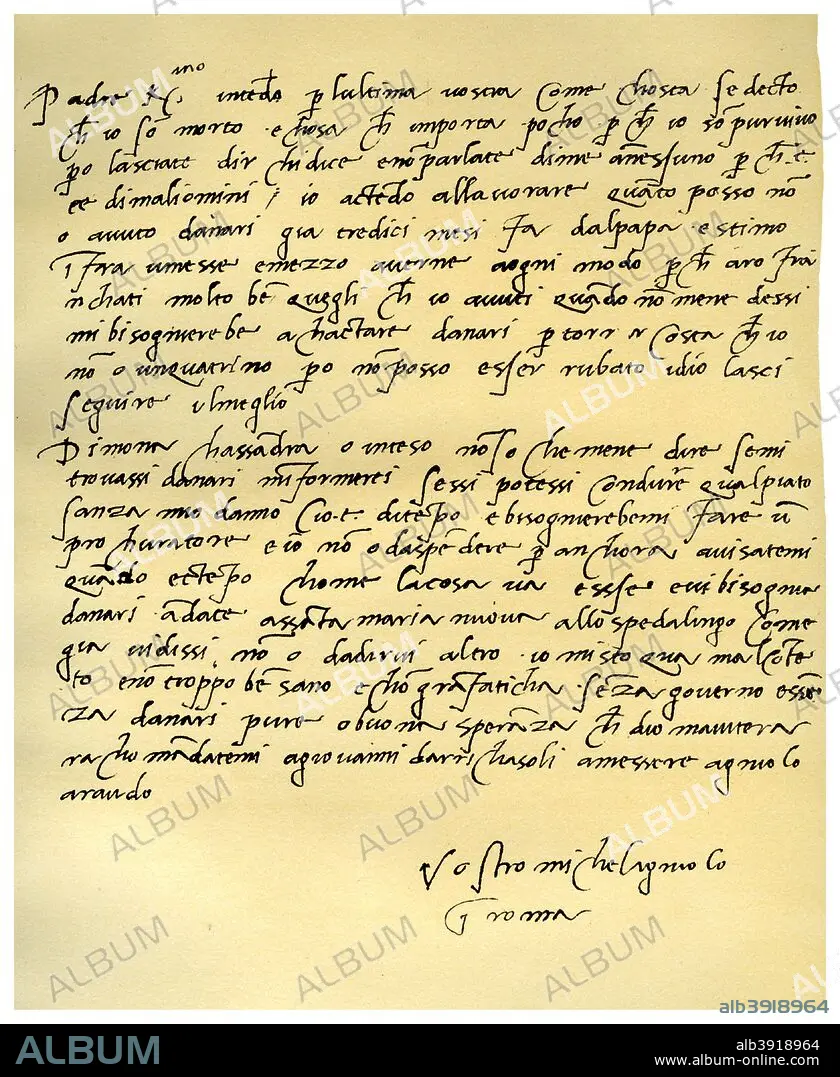 Padre K(mo intēdo p lultima vostra come chosta se decto
ch io sō morto e chosa ch importa pocho p ch io sō pur vivo
po lasciate dir chi dice e nō parlate di me a nessuno p ch e
ce di mali omini / io actēdo allavorare quāto posso nō
o avuto danari gia tredici mesi fa dal papa e stimo
ī fra u mesſe e mezzo averne a ogni modo p ch aro fra
nchati molto bē quegli ch io avuti quādo nō me ne dessi
mi bisogniere be achactare danari p torr costa ch io
nō o un quatrino po nō posso esser rubato idio lasci
seguire il meglio
Di mona chassandra o inteso nō so che me ne dire se mi
trovassi danari minformerei sessi potessi condurre qua l piato
sanza mio danno cio e di tēpo e bisognierebemi fare ū
prochuratore e io nō o da spēdere p anchora avisatemi
quādo e ctēpo chome la cosa va e sse e vi bisognia
danari ādate a ssāta maria nuova allo spedalingo come
gia vi dissi nō o da dirvi altro io mi sto qua mal cōte
to e nō troppo bē sano e chō grā faticha sēza governo e ssēn
za danari pure o buona sperāza ch dio maiutera
rachomādatemi a giovanni da richasoli a messere agniolo
araldo
Vostro michelagniolo
ī roma
ALBUM
alb3918964
ALBUM
alb3918964
www.album-online.com